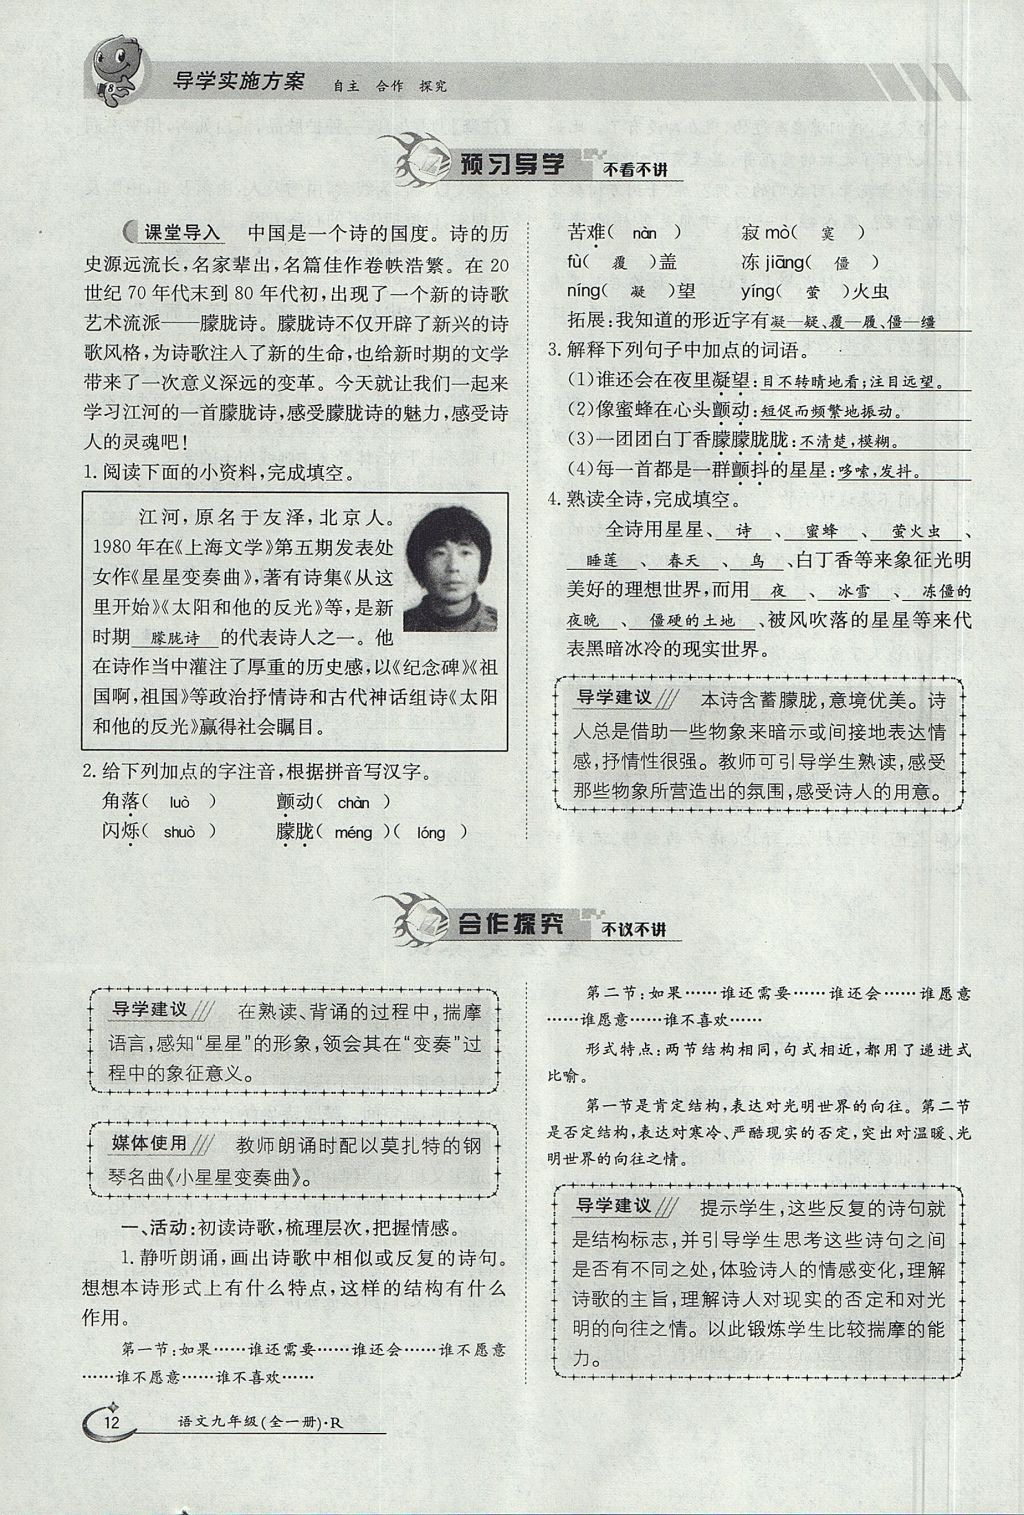 导学实施方案 自主 合作 探究
预习导学 不看不讲
课堂导入 中国是一个诗的国度。诗的历
史源远流长,名家辈出,名篇佳作卷帙浩繁。在 20
世纪 70 年代末到 80 年代初,出现了一个新的诗歌
艺术流派——朦胧诗。朦胧诗不仅开辟了新兴的诗
歌风格,为诗歌注入了新的生命,也给新时期的文学
带来了一次意义深远的变革。今天就让我们一起来
学习江河的一首朦胧诗,感受朦胧诗的魅力,感受诗
人的灵魂吧!
1.阅读下面的小资料,完成填空。
江河,原名于友泽,北京人。
1980 年在《上海文学》第五期发表处
女作《星星变奏曲》,著有诗集《从这
里开始》《太阳和他的反光》等,是新
时期 朦胧诗 的代表诗人之一。他
在诗作当中灌注了厚重的历史感,以《纪念碑》《祖
国啊,祖国》等政治抒情诗和古代神话组诗《太阳
和他的反光》赢得社会瞩目。
2.给下列加点的字注音,根据拼音写汉字。
角落( luò ) 颤动( chàn )
闪烁( shuò ) 朦胧( méng )( lóng )
苦难( nàn ) 寂 mò( 寞 )
fù( 覆 )盖 冻 jiāng( 僵 )
níng( 凝 )望 yíng( 萤 )火虫
拓展:我知道的形近字有凝—疑、覆—履、僵—缰
3.解释下列句子中加点的词语。
(1)谁还会在夜里凝望:目不转睛地看;注目远望。
(2)像蜜蜂在心头颤动:短促而频繁地振动。
(3)一团团白丁香朦朦胧胧:不清楚,模糊。
(4)每一首都是一群颤抖的星星:哆嗦,发抖。
4.熟读全诗,完成填空。
全诗用星星、 诗 、 蜜蜂 、 萤火虫 、
睡莲 、 春天 、 鸟 、白丁香等来象征光明
美好的理想世界,而用 夜 、 冰雪 、 冻僵的
夜晚 、 僵硬的土地 、被风吹落的星星等来代
表黑暗冰冷的现实世界。
导学建议 本诗含蓄朦胧,意境优美。诗
人总是借助一些物象来暗示或间接地表达情
感,抒情性很强。教师可引导学生熟读,感受
那些物象所营造出的氛围,感受诗人的用意。
合作探究 不议不讲
导学建议 在熟读、背诵的过程中,揣摩
语言,感知“星星”的形象,领会其在“变奏”过
程中的象征意义。
媒体使用 教师朗诵时配以莫扎特的钢
琴名曲《小星星变奏曲》。
一、活动:初读诗歌,梳理层次,把握情感。
1.静听朗诵,画出诗歌中相似或反复的诗句。
想想本诗形式上有什么特点,这样的结构有什么
作用。
第一节:如果……谁还需要……谁还会……谁不愿意
……谁不愿意……谁不喜欢……
第二节:如果……谁还需要……谁还会……谁愿意
……谁愿意……谁不喜欢……
形式特点:两节结构相同,句式相近,都用了递进式
比喻。
第一节是肯定结构,表达对光明世界的向往。第二节
是否定结构,表达对寒冷、严酷现实的否定,突出对温暖、光
明世界的向往之情。
导学建议 提示学生,这些反复的诗句就
是结构标志,并引导学生思考这些诗句之间
是否有不同之处,体验诗人的情感变化,理解
诗歌的主旨,理解诗人对现实的否定和对光
明的向往之情。以此锻炼学生比较揣摩的能
力。
12 语文九年级(全一册)·R